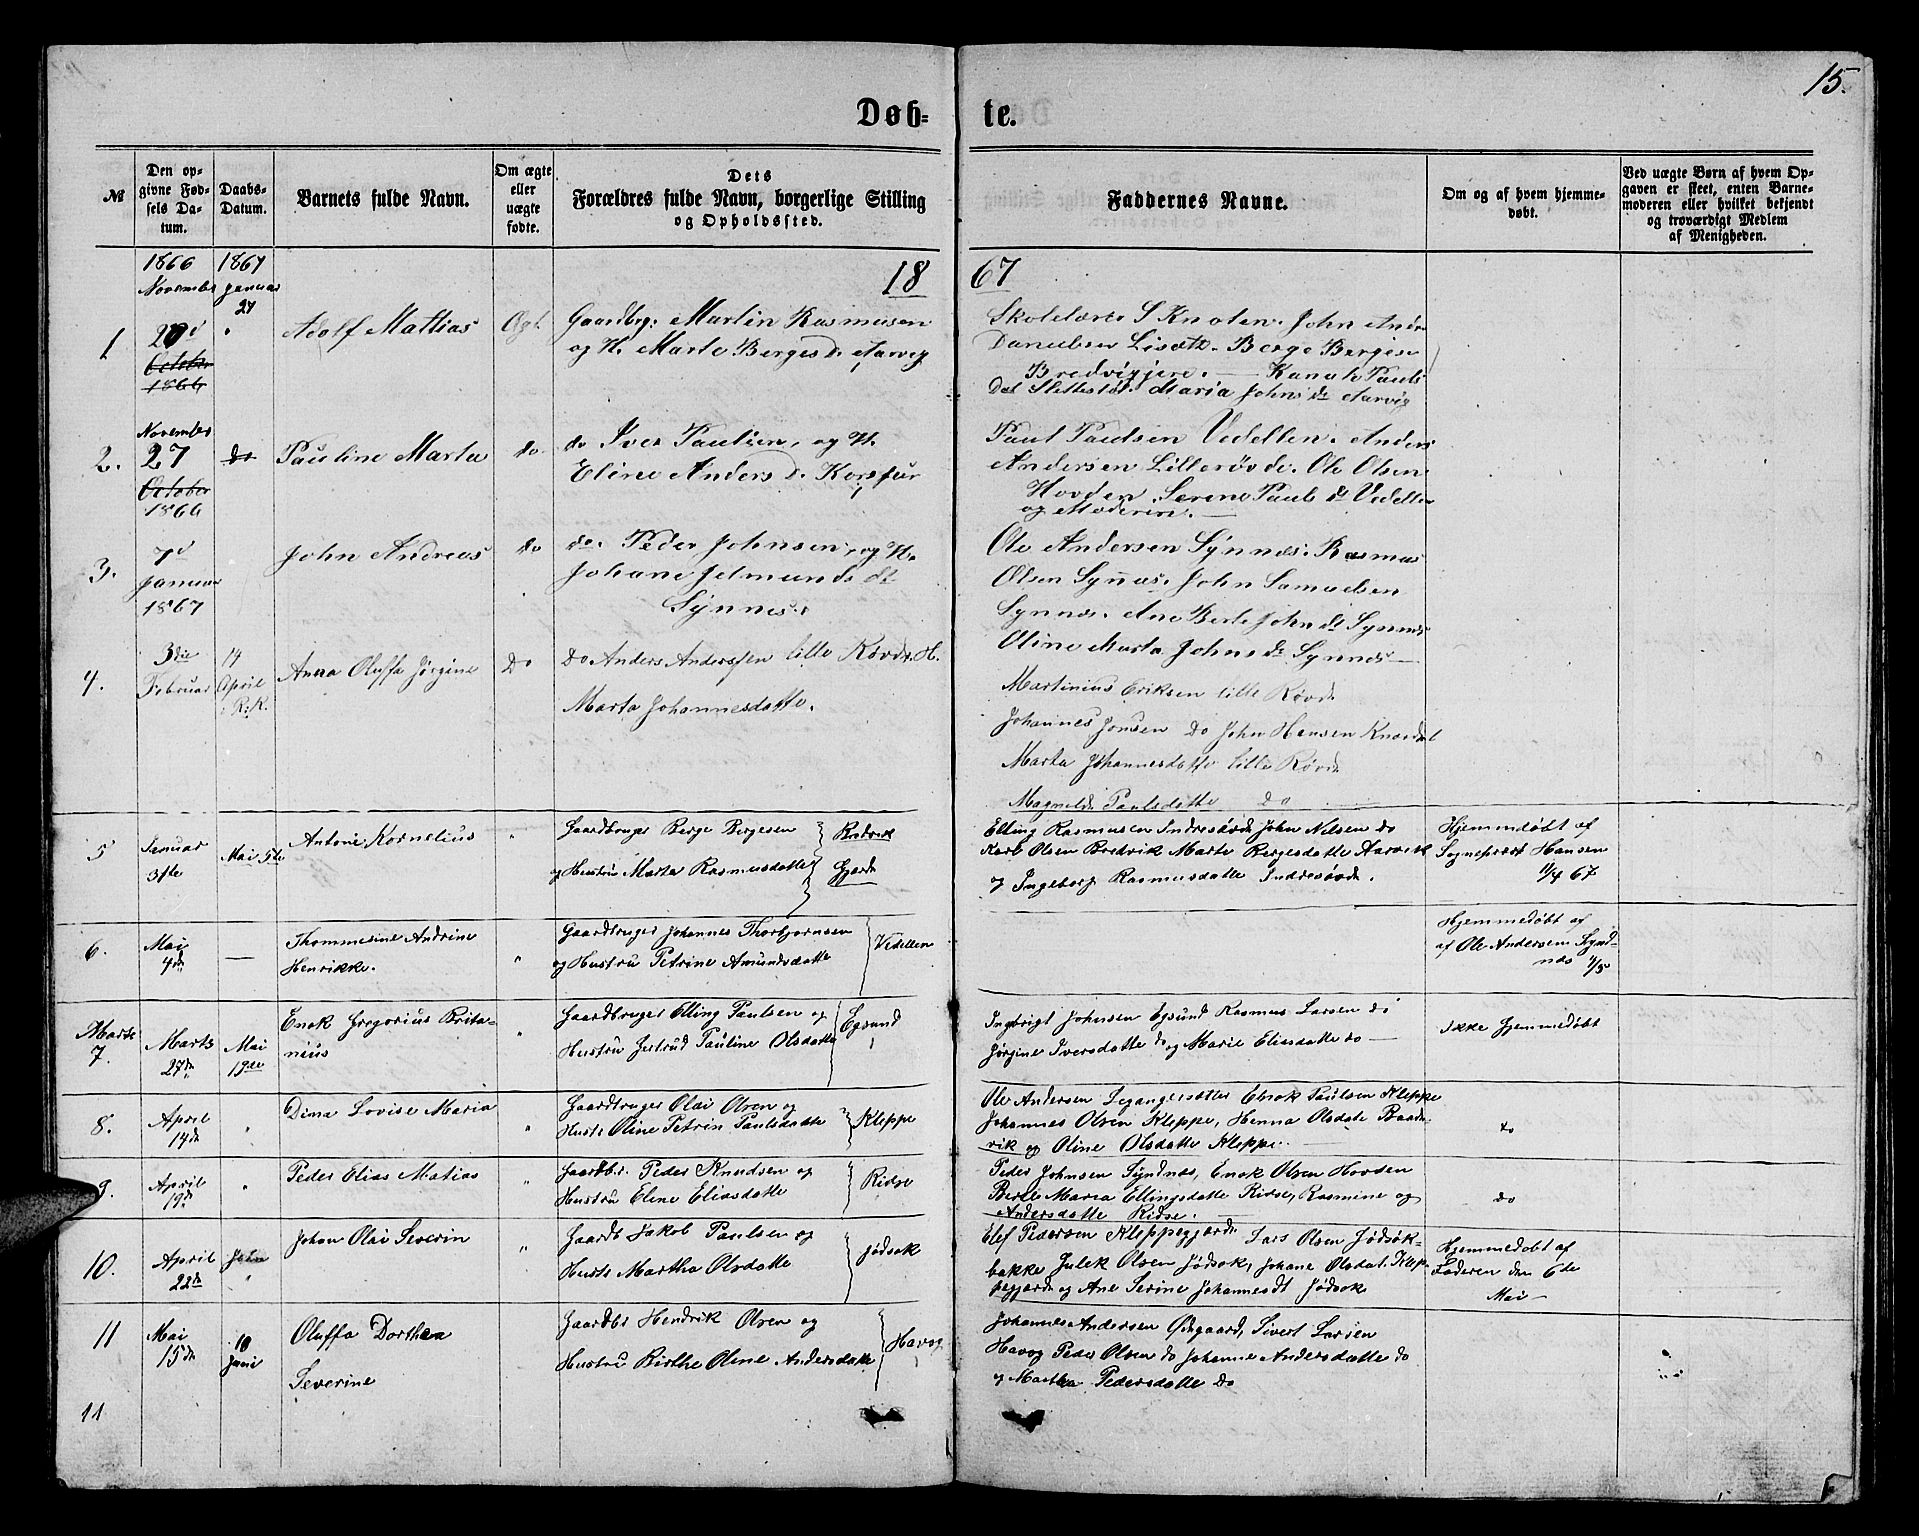 15.
Døb= te.
№
Den op-
givne Fød-
sels Da-
tum.
Daabs-
Datum.
Barnets fulde Navn.
Om ægte
eller
uægte
fødte.
Dets
Forældres fulde Navn, borgerlige Stilling
og Opholdssted.
Faddernes Navne.
Om og af hvem hjemme-
døbt.
Ved uægte Børn af hvem Op-
gaven er skeet, enten Barne-
moderen eller hvilket bekjendt
og troværdigt Medlem
af Menigheden.
1866 1867
November Januar
27
18 67
1
October
1866
Adolf Mattias
Ægt.
Gaardbrg: Martin Rasmusen
og H. Marte Berges D. Aarvig
Skolelærer S Knoten. John Andr
Danielsen Lisæth. Berge Bergesen
Bredviggjere. — Kanute Pauls
Dat Slettestøl. Maria Johns dt Aarvig
2.
November
27
October
1866
do
Pauline Marta
do.
do Iver Paulsen, og H.
Eline Anders D. Korsfur
Paul Paulsen Vedellen. Anders
Andersen Lillerøvde. Ole Olsen
Hovden. Serene Pauls dt Vedellen
og Moderen. —
3.
7d
Januar
1867
John Andreas
do
do. Peder Johnsen, og H.
Johane Jetmunds dt
Synnes.
Ole Andersen Synnes. Rasmus
Olsen Synnes. John Samuelsen
Synnes. Ane Berte John dt Synnes
Oline Marta Johns dt Synnes —
4.
3die
Februar
19
April
i R.K.
Anna Oluffa Jørgine
Do
Do Anders Anderssen lille Røvde. H.
Marta Johannesdatte.
Martinius Eriksen lille Røvde
Johannes Jonsen Do John Hansen Knardal
Marta Johannesdatte lille Røvde
Magnilde Paulsdatte do
5
Januar
3te
Mai 5te
Antoni Kornelius
"
Gaardbruger Berge Bergesen
og Hustru Marta Rasmusdatte
Bredvik
Gjerde
Elling Rasmusen Indresøvde John Nilsen do
Karl Olsen Bredvik Marte Bergesdatte Aarvik
og Ingeborg Rasmusdatte Indresøvde.
Hjemmedøbt af
Sogneprest Hansen
1/4 67
6.
Mai
4de
—
Thommesine Andrine
Henrikke.
"
Gaardbruger Johannes Thorbjørnsen
og Hustru Petrine Amundsdatte
Vedellen
Hjemmedøbt af
af Ole Andersen Synd-
næs 11/5
Marts
7.
Marts
27de
Mai
19de
Enok Gregorius Brita-
nius
"
Gaardbruger Elling Paulsen og
Hustru Jertrud Pauline Olsdatte
Egsund
Ingbrigt Johnsen Egsund Rasmus Larsen do
Jørgine Iversdatte do og Marie Eliasdatte do —
Ikke Hjemmedøbt
8.
April
14de
"
Dina Lovise Maria
"
Gaardbruger Olai Olsen og
Husts Oline Petrin Paulsdatte
Kleppe
Ole Andersen Legangersætter Enok Paulsen Kleppe
Johannes Olsen Kleppe, Henna Olsdate Baads-
vik og Oline Olsdatte Kleppe. —
do
9.
April
19de
"
Peder Elias Matias
"
Gaardbr. Peder Knudsen og
Hustru Eline Eliasdatte
Ridse
Peder Johnsen Syndnæs, Enok Olsen Hovden
Berte Maria Ellingsdatte Ridse, Rasmine og
Andersdatte Ridse. —
do
10.
April
22de
Johan Olai Severin
"
Gaardb Jakob Paulsen og
Husts Martha Olsdatte
Jødsøk
Elef Pedersen Kleppegjerde Lars Olsen Jødsøk-
bakke Julek Olsen Jødsøk, Johane Olsdat. Klep-
pegjerde og Ane Serine Johannesdt Jødsøk
Hjemmedøbt af
Faderen den 6de
Mai —
11
Mai
15de
10
Juni
Oluffa Dorthea
Severine
Gaardbr Hendrik Olsen og
Hustru Birthe Oline Andersdatte
Havog
Johannes Andersen Ødegaard, Sivert Larsen
Havog Peder Olsen do Johanne Andersdatte do
og Martha Pedersdatte Do
11